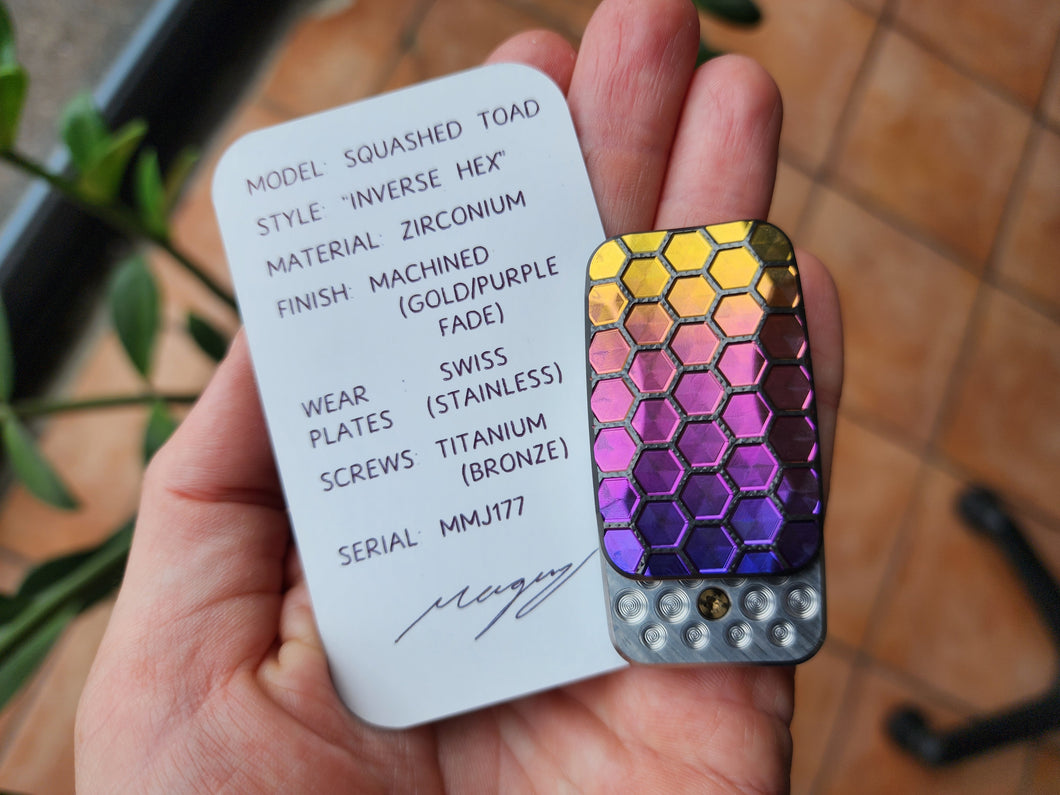 MODEL: SQUASHED TOAD
STYLE: "INVERSE HEX"
MATERIAL: ZIRCONIUM
FINISH: MACHINED
(GOLD/PURPLE
FADE)
WEAR : SWISS
PLATES (STAINLESS)
SCREWS: TITANIUM
(BRONZE)
SERIAL: MMJ177